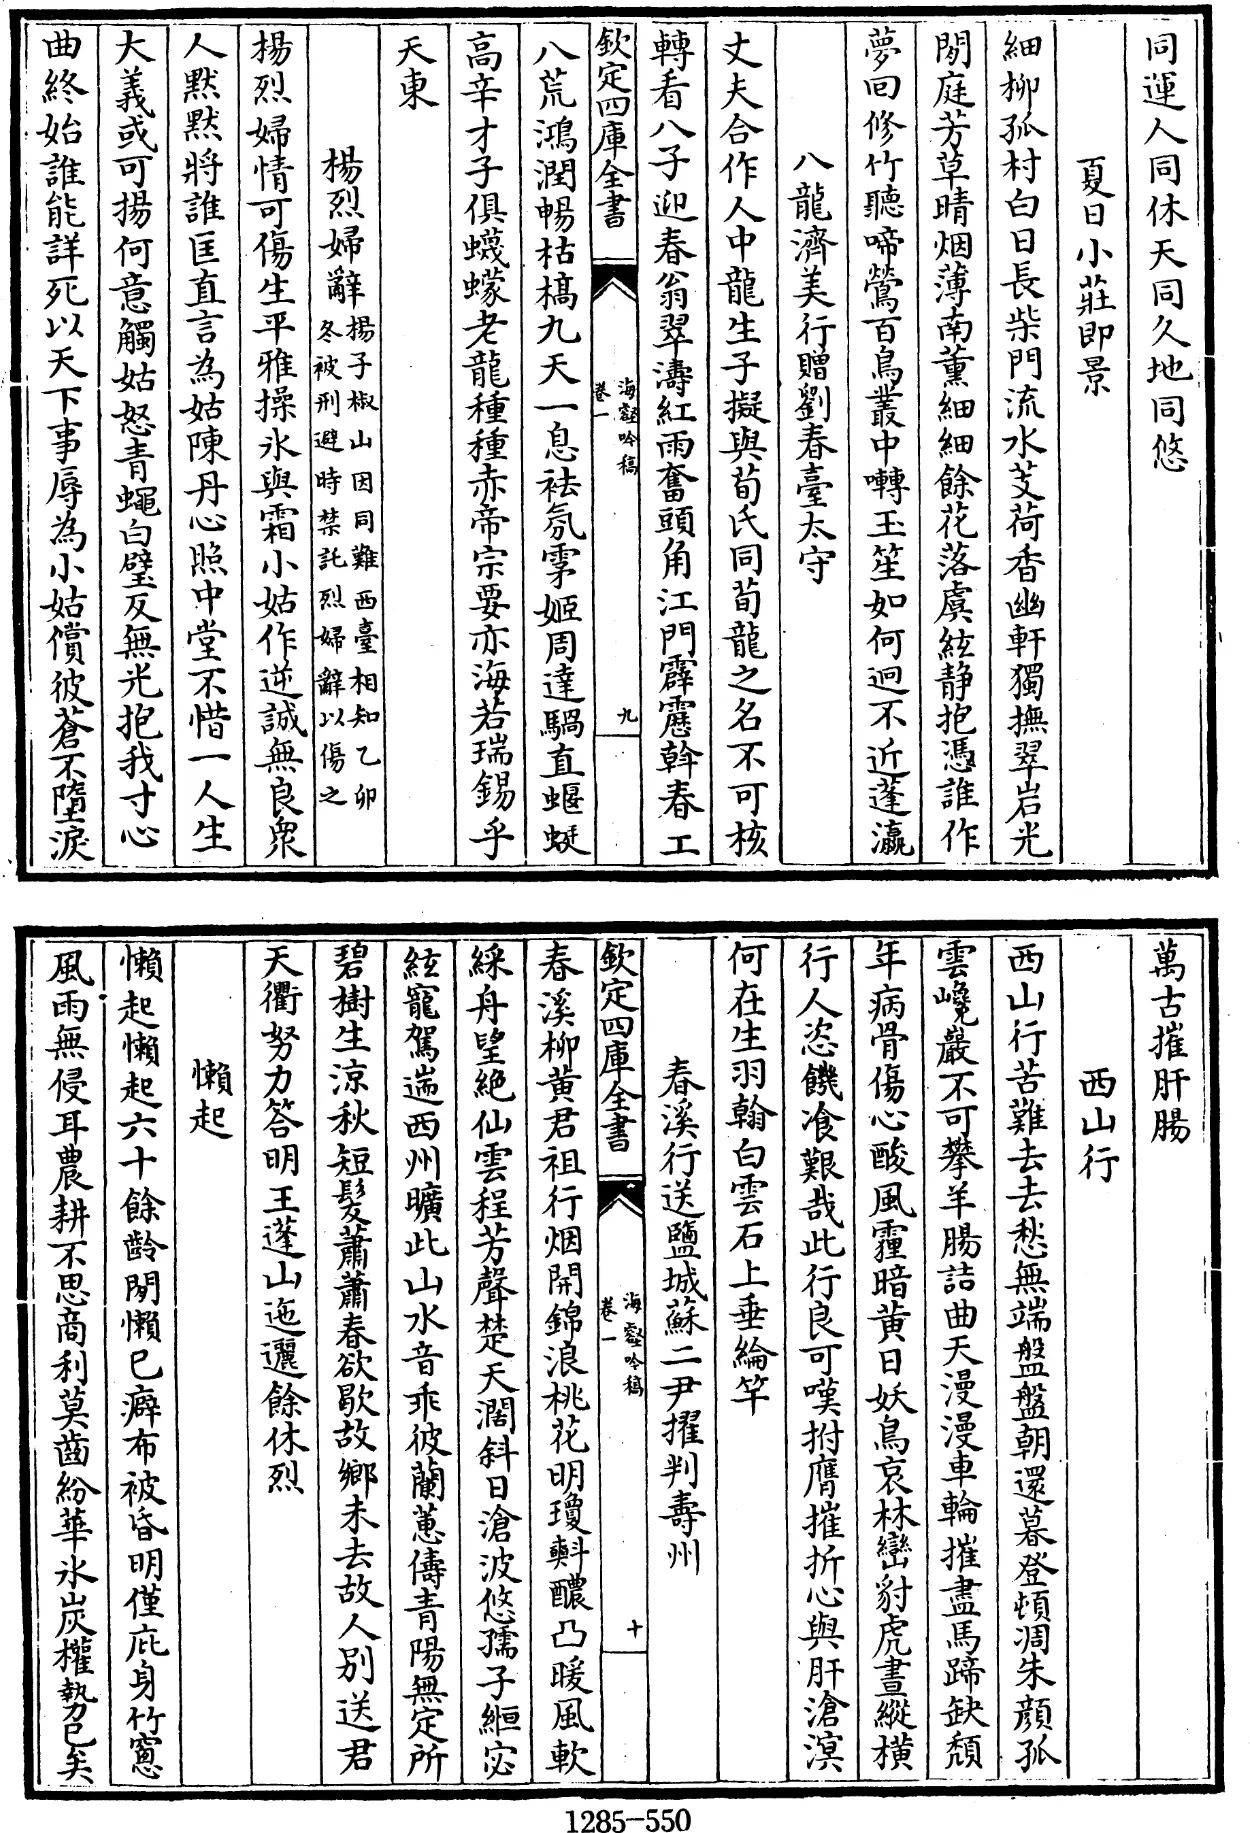 同運人同休天同久地同悠
夏日小莊即景
細柳孤村白日長柴門流水芰荷香幽軒獨撫翠岩光
閒庭芳草晴烟薄南薰細細餘花落虞絃静抱憑誰作
夢回修竹聽啼鶯百鳥叢中囀玉笙如何迥不近蓬瀛
八龍濟美行贈劉春臺太守
丈夫合作人中龍生子擬與荀氏同荀龍之名不可核
轉看八子迎春翁翠濤紅雨奮頭角江門霹靂斡春工
欽定四庫全書
海壑吟稿
卷一
九
八荒鴻潤暢枯槁九天一息袪氛雺姬周達騧直蝘蜓
高辛才子俱蠛蠓老龍種種赤帝宗要亦海若瑞錫乎
天東
楊烈婦辭楊子椒山因同難西臺相知乙卯
冬被刑避時禁託烈婦辭以傷之
楊烈婦情可傷生平雅操氷與霜小姑作逆誠無良衆
人默默將誰匡直言為姑陳丹心照中堂不惜一人生
大義或可揚何意觸姑怒青蠅白璧反無光抱我寸心
曲終始誰能詳死以天下事辱為小姑償彼蒼不墮淚
萬古摧肝腸
西山行
西山行苦難去去愁無端盤盤朝還暮登頓凋朱顔孤
雲巉巖不可攀羊腸詰曲天漫漫車輪摧盡馬蹄缺頽
年病骨傷心酸風霾暗黄日妖鳥哀林巒豺虎晝縱横
行人恣饑飡艱哉此行良可嘆拊膺摧折心與肝滄溟
何在生羽翰白雲石上垂綸竿
春溪行送鹽城蘇二尹擢判壽州
欽定四庫全書
海壑吟稿
卷一
十
春溪柳黄君祖行烟開錦浪桃花明瓊㪺醲凸暖風軟
綵舟望絶仙雲程芳聲楚天濶斜日滄波悠孺子緪宓
絃寵駕遄西州曠此山水音乖彼蘭蕙儔青陽無定所
碧樹生涼秋短髮蕭蕭春欲歇故鄉未去故人别送君
天衢努力答明王蓬山迤邐餘休烈
懶起
懶起懶起六十餘齡閒懶已癖布被昏明僅庇身竹窻
風雨無侵耳農耕不思商利莫齒紛華氷炭權勢已矣
1285-550